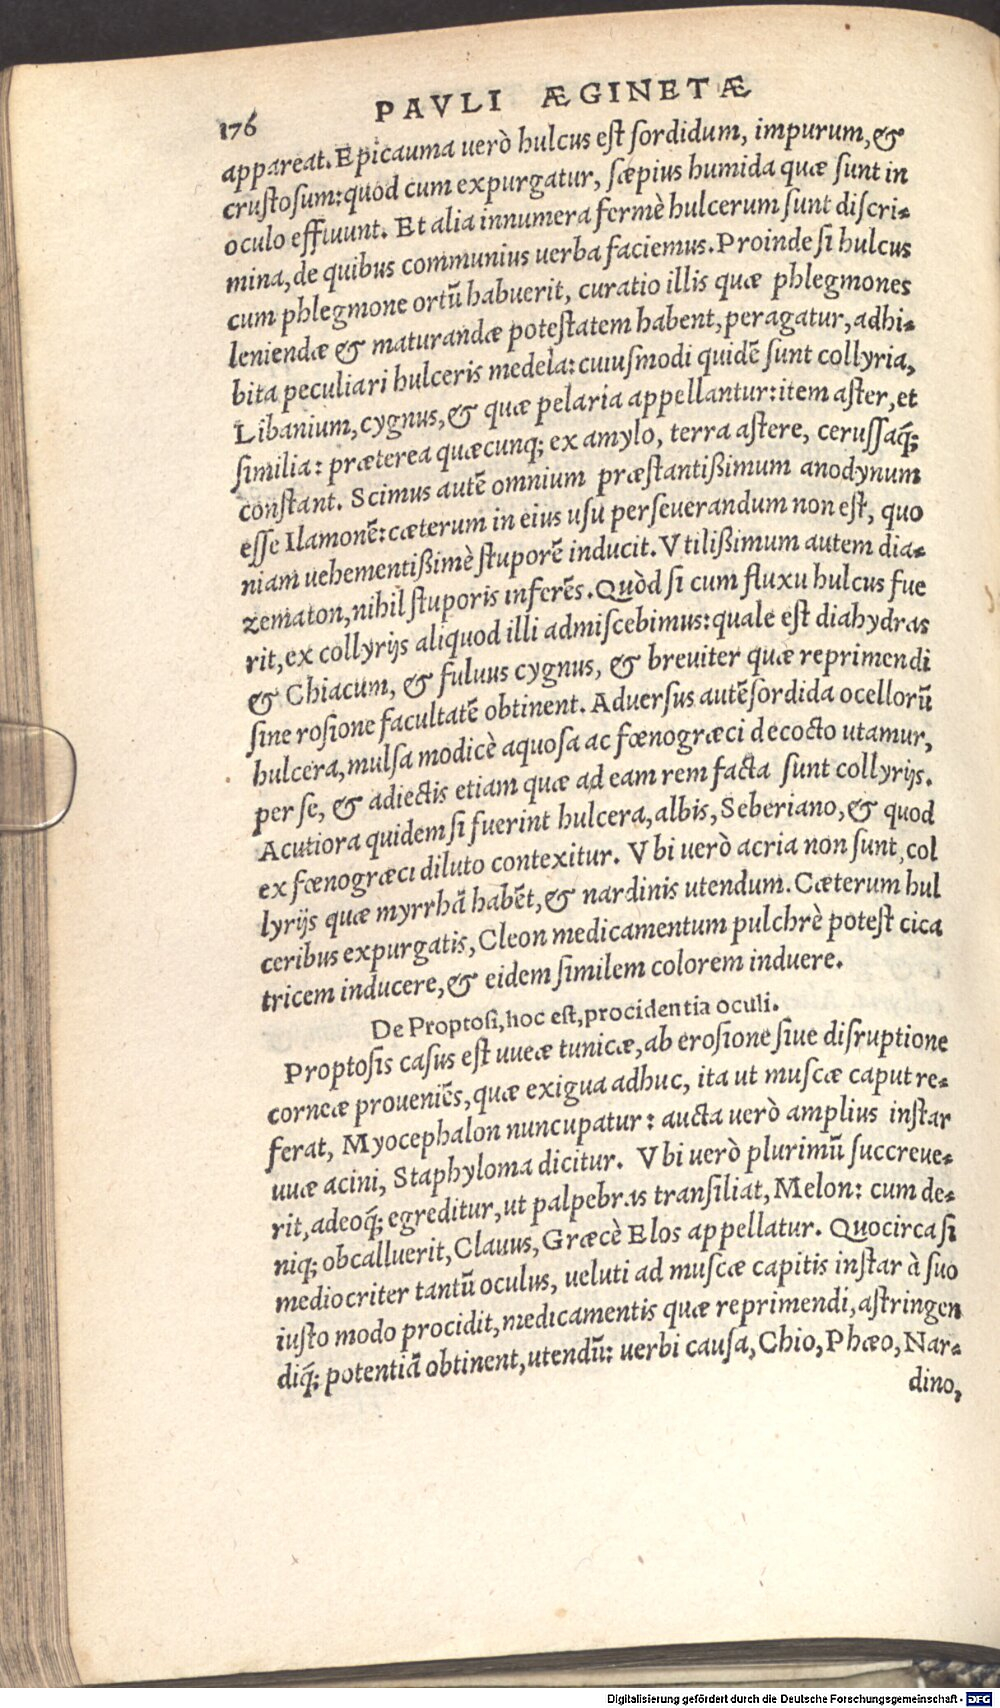 176 PAVLI ÆGINETÆ
appareat. Epicauma uerò hulcus est sordidum, impurum, &
crustosum: quod cum expurgatur, sæpius humida quæ sunt in
oculo effluunt. Et alia innumera fermè hulcerum sunt discri-
mina, de quibus communius uerba faciemus. Proinde si hulcus
cum phlegmone ortū habuerit, curatio illis quæ phlegmones
leniendæ & maturandæ potestatem habent, peragatur, adhi-
bita peculiari hulceris medela: cuiusmodi quidē sunt collyria,
Libanium, cygnus, & quæ pelaria appellantur: item aster, et
similia: præterea quæcunq; ex amylo, terra astere, cerussaq́;
constant. Scimus autē omnium præstantißimum anodynum
esse Ilamonē: cæterum in eius usu perseuerandum non est, quo
niam uehementißimè stuporē inducit. Vtilißimum autem dia-
zematon, nihil stuporis inferēs. Quòd si cum fluxu hulcus fue
rit, ex collyrijs aliquod illi admiscebimus: quale est diahydras
& Chiacum, & fuluus cygnus, & breuiter quæ reprimendi
sine rosione facultatē obtinent. Aduersus autē sordida ocellorū
hulcera, mulsa modicè aquosa ac fœnogræci decocto utamur,
per se, & adiectis etiam quæ ad eam rem facta sunt collyrijs.
Acutiora quidem si fuerint hulcera, albis, Seberiano, & quod
ex fœnogræci diluto contexitur. Vbi uerò acria non sunt, col
lyrijs quæ myrrhā habēt, & nardinis utendum. Cæterum hul
ceribus expurgatis, Cleon medicamentum pulchrè potest cica
tricem inducere, & eidem similem colorem induere.
De Proptosi, hoc est, procidentia oculi.
Proptosis casus est uueæ tunicæ, ab erosione siue disruptione
corneæ proueniēs, quæ exigua adhuc, ita ut muscæ caput re-
ferat, Myocephalon nuncupatur: aucta uerò amplius instar
uuæ acini, Staphyloma dicitur. Vbi uerò plurimū succreue-
rit, adeoq́; egreditur, ut palpebras transiliat, Melon: cum de-
niq; obcalluerit, Clauus, Græcè Elos appellatur. Quocirca si
mediocriter tantū oculus, ueluti ad muscæ capitis instar à suo
iusto modo procidit, medicamentis quæ reprimendi, astringen
diq́; potentiā obtinent, utendū: uerbi causa, Chio, Phæo, Nar-
dino,
Digitalisierung gefördert durch die Deutsche Forschungsgemeinschaft - DFG